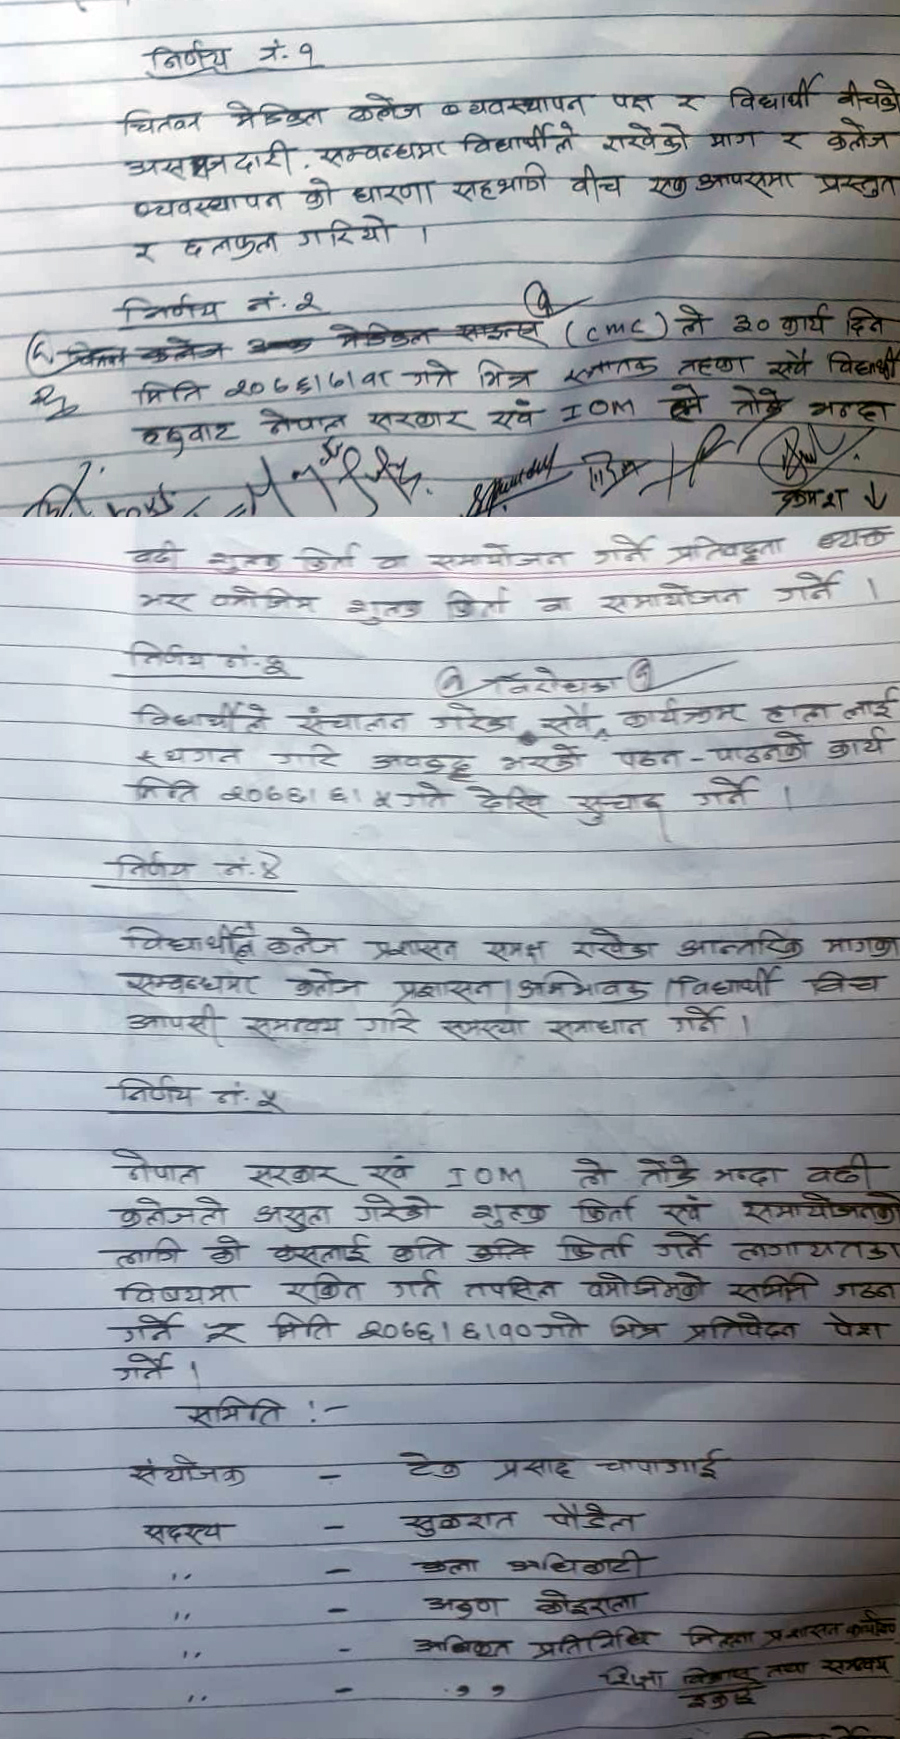 निर्णय नं. १
चितवन मेडिकल कलेज व्यवस्थापन पक्ष र विद्यार्थी बीचको
असमझदारी सम्बन्धमा विद्यार्थीले राखेको माग र कलेज
व्यवस्थापन को धारणा सहभागी बीच एक आपसमा प्रस्तुत
र छलफल गरियो ।
निर्णय नं. २
मेडिकल साइन्स (CMC) ले ३० कार्य दिन
मिति २०७६।७।१९ गते भित्र स्नातक तहका सबै विद्यार्थी
हरुबाट नेपाल सरकार एवं IOM ले तोके भन्दा
क्रमश ↓
बढी शुल्क फिर्ता वा समायोजन गर्ने प्रतिवद्धता व्यक्त
भए बमोजिम शुल्क फिर्ता वा समायोजन गर्ने ।
निर्णय नं. ३
विरोधका
विद्यार्थीले संचालन गरेका सबै कार्यक्रम हाल लाई
स्थगन गरि अवरुद्ध भएको पठन-पाठनको कार्य
मिति २०७६।६।५ गते देखि सुचारु गर्ने ।
निर्णय नं. ४
विद्यार्थीले कलेज प्रशासन समक्ष राखेका आन्तरिक मागका
सम्बन्धमा कलेज प्रशासन।अभिभावक।विद्यार्थी बिच
आपसी समन्वय गरि समस्या समाधान गर्ने ।
निर्णय नं. ५
नेपाल सरकार एवं IOM ले तोके भन्दा बढी
कलेजले असुल गरेको शुल्क फिर्ता एवं समायोजनको
लागि को कसलाई कति फिर्ता गर्ने लगायतका
विषयमा एकिन गर्न तपसिल बमोजिमको समिति गठन
गर्ने र मिति २०७६।६।१० गते भित्र प्रतिवेदन पेश
गर्ने ।
समिति :-
संयोजक - टेक प्रसाद चापागाई
सदस्य - सुकरात पौडेल
,, - कला अधिकारी
,, - अरुण कोइराला
,, - अधिकृत प्रतिनिधि जिल्ला प्रशासन कार्यालय
,, - ,, शिक्षा विकास तथा समन्वय
इकाई